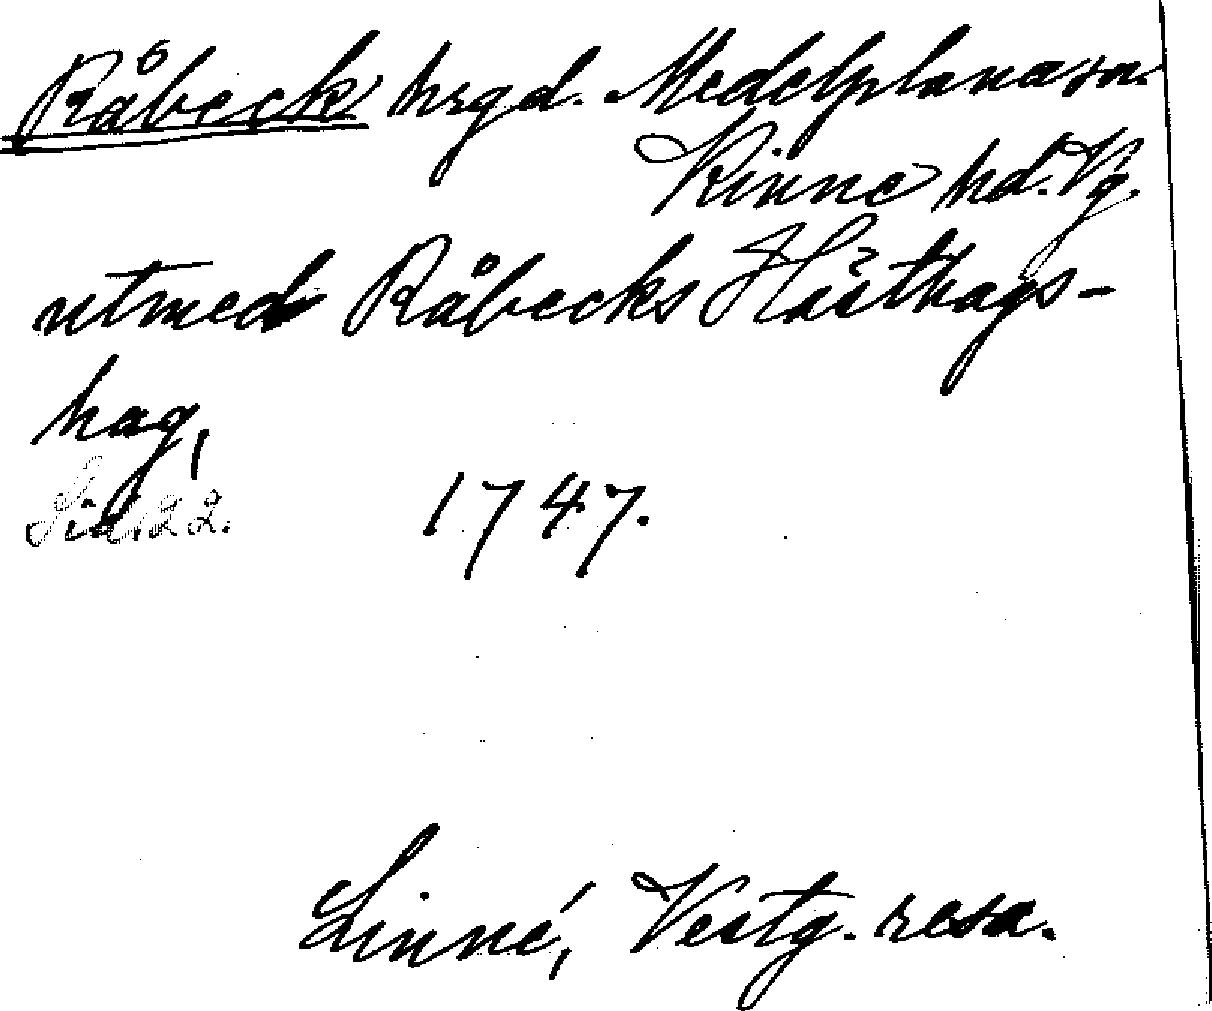 Råbeck hrgd. Medelplana sn.
Kinne hd. Vg.
utmed Råbecks Hästhags-
hag,
Sid. 22. 1747.
Linné, Vestg. resa.